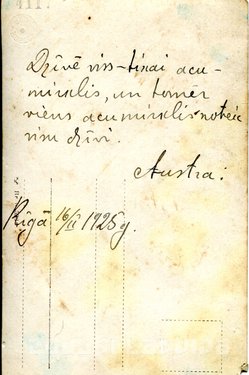 Dzīvē viss – tikai acu-
mirklis, un tomēr
viens acumirklis noteic
visu dzīvi.
Austra.
Rīgā 16/II 1925 g.